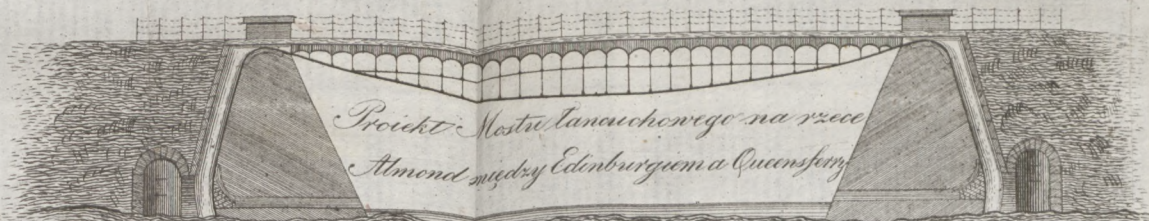 Proiekt Mostu łancuchowego na rzece
Almond między Edinburgiem a Queensferry